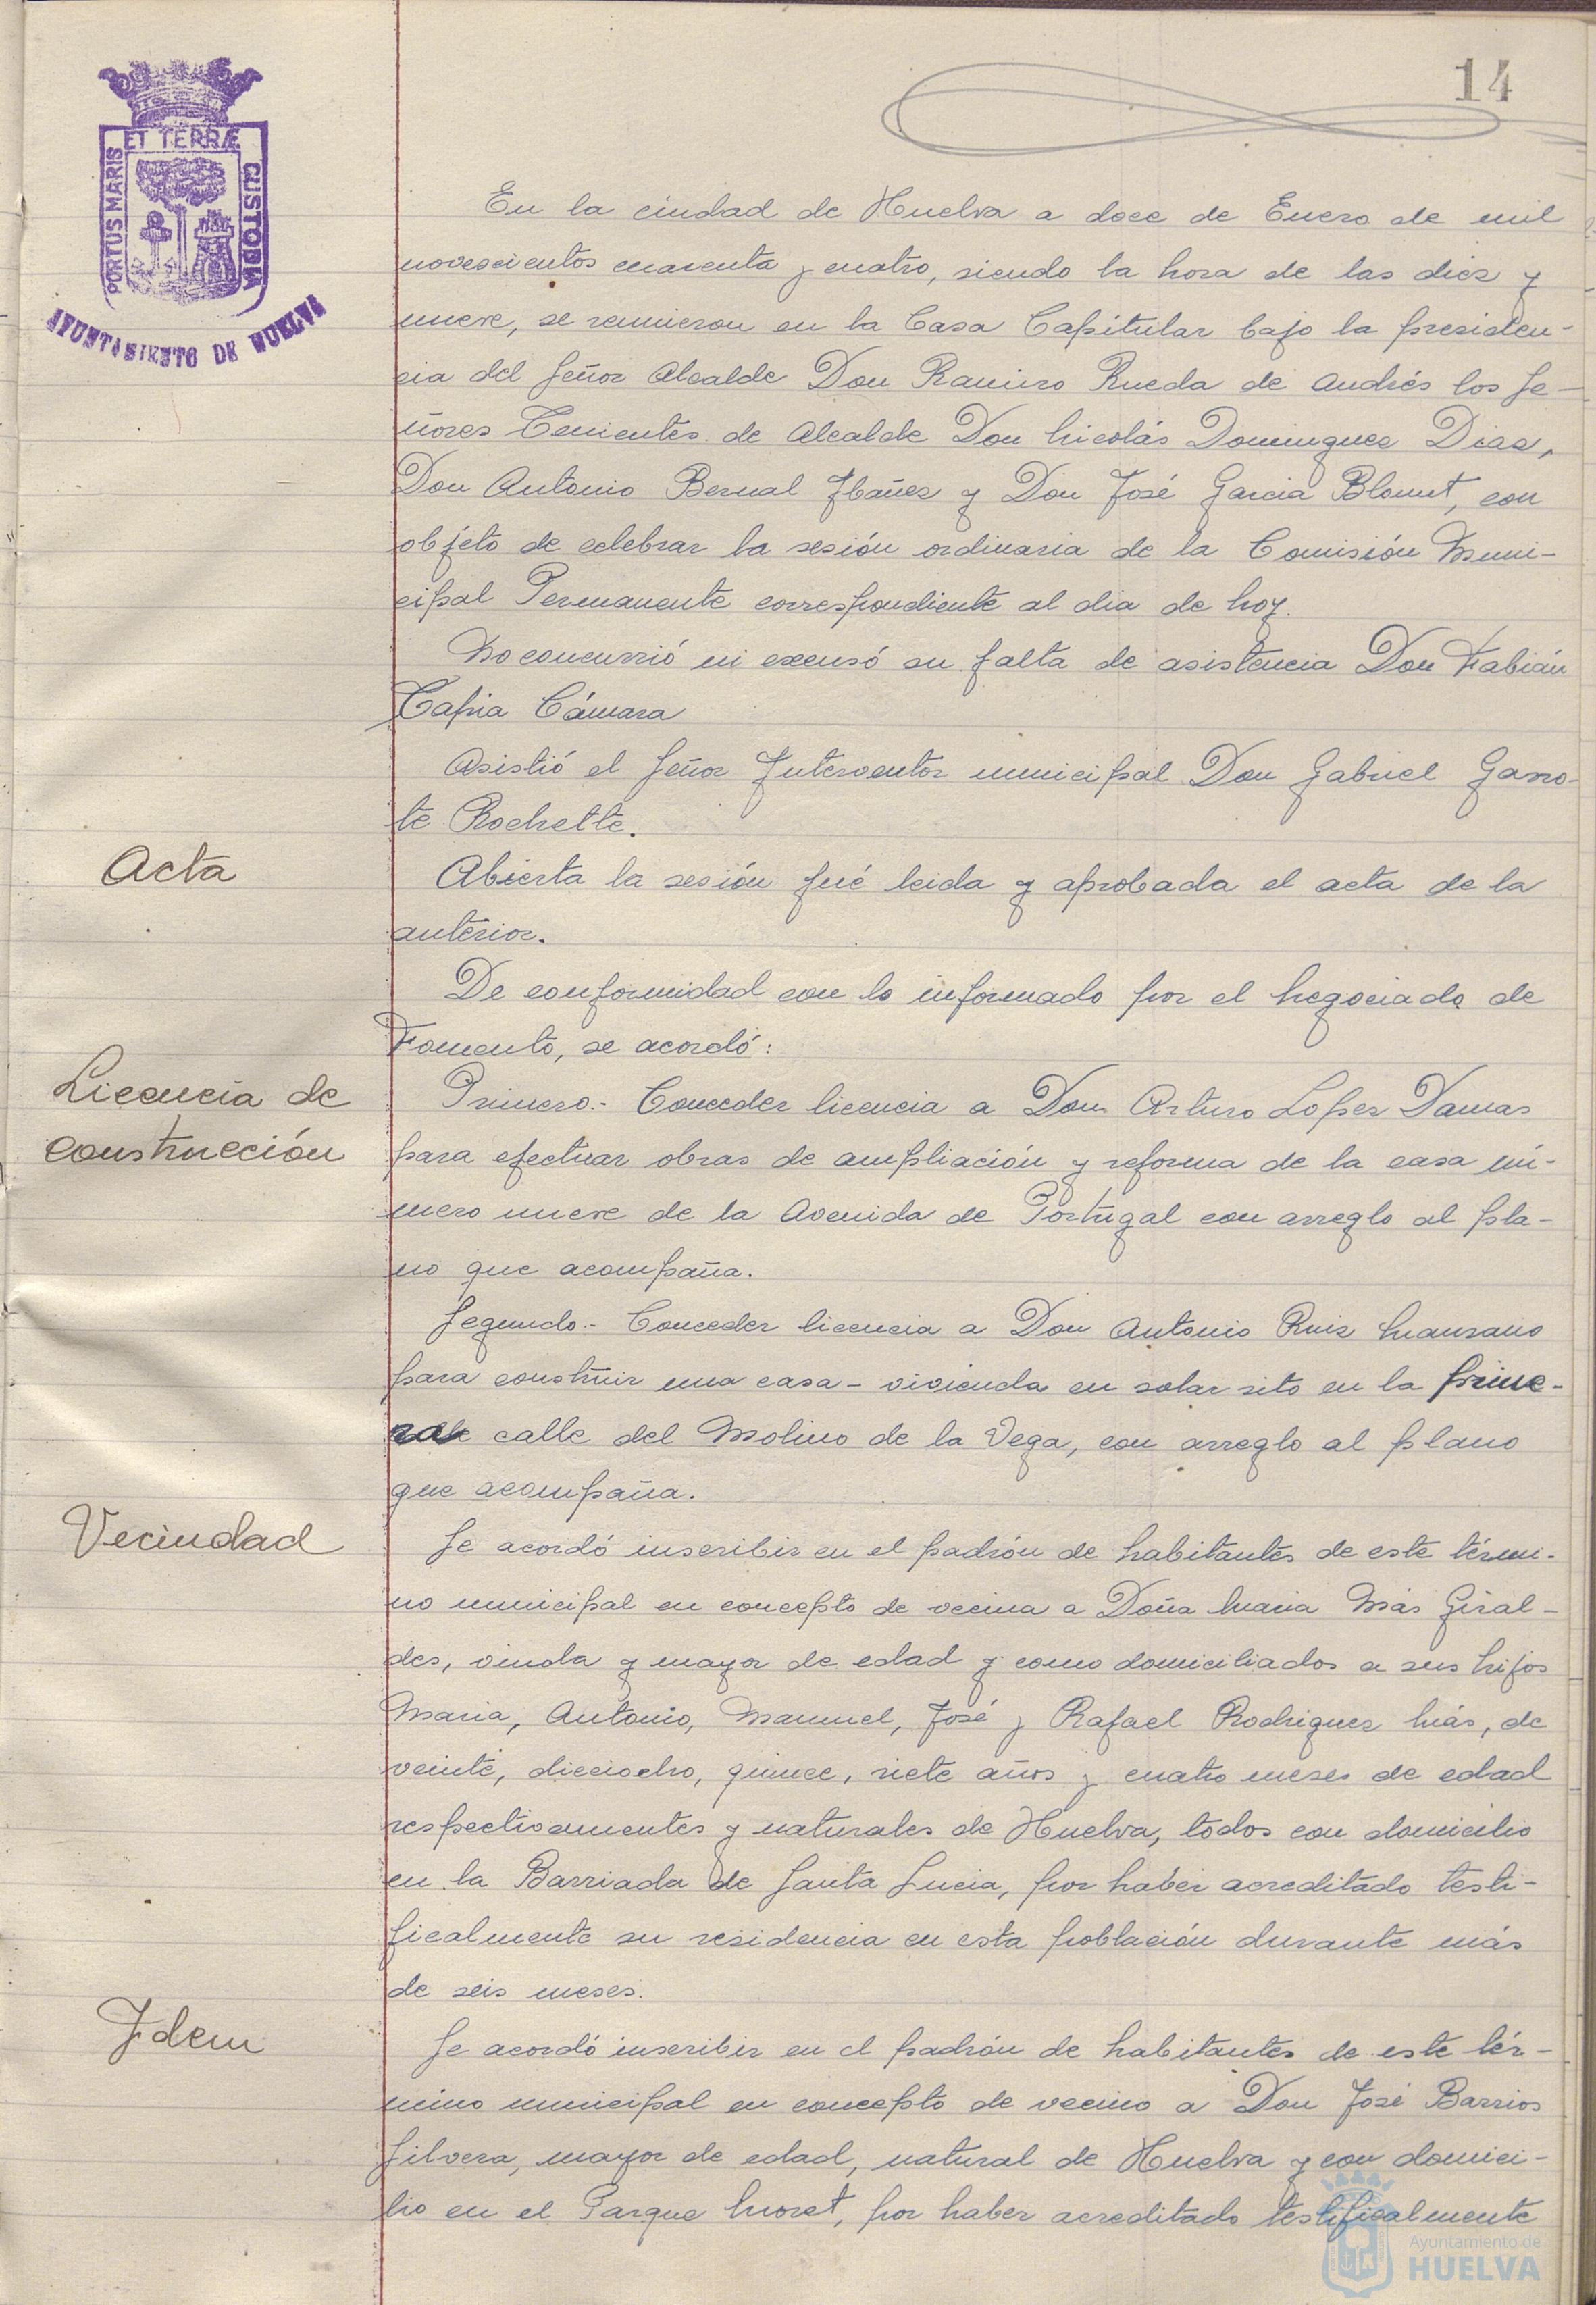 14
ET TERRÆ
PORTUS MARIS
CUSTODIA
AYUNTAMIENTO DE HUELVA
En la ciudad de Huelva a doce de Enero de mil
novescientos cuarenta y cuatro, siendo la hora de las diez y
nueve, se reunieron en la Casa Capitular bajo la presiden-
cia del Señor Alcalde Don Ramiro Rueda de Andrés los Se-
ñores Tenientes de Alcalde Don Nicolás Dominguez Diaz,
Don Antonio Bernal Ibañez y Don José Garcia Blomet, con
objeto de celebrar la sesión ordinaria de la Comisión Muni-
cipal Permanente correspondiente al dia de hoy.
No concurrió ni excusó su falta de asistencia Don Fabián
Tapia Cámara
Asistió el Señor Interventor municipal Don Gabriel Garro-
te Rochette.
Acta
Abierta la sesión fué leida y aprobada el acta de la
anterior.
De conformidad con lo informado por el Negociado de
Fomento, se acordó:
Licencia de
construcción
Primero.- Conceder licencia a Don Arturo Lopez Damas
para efectuar obras de ampliación y reforma de la casa nú-
mero nueve de la Avenida de Portugal con arreglo al pla-
no que acompaña.
Segundo.- Conceder licencia a Don Antonio Ruiz Manzano
para construir una casa-vivienda en solar sito en la prime-
ra calle del Molino de la Vega, con arreglo al plano
que acompaña.
Vecindad
Se acordó inscribir en el padrón de habitantes de este térmi-
no municipal en concepto de vecina a Doña Maria Más Giral-
des, viuda y mayor de edad y como domiciliados a sus hijos
Maria, Antonio, Manuel, José y Rafael Rodriguez Más, de
veinte, dieciocho, quince, siete años y cuatro meses de edad
respectivamentes y naturales de Huelva, todos con domicilio
en la Barriada de Santa Lucia, por haber acreditado testi-
ficalmente su residencia en esta población durante más
de seis meses.
Idem
Se acordó inscribir en el padrón de habitantes de este tér-
mino municipal en concepto de vecino a Don José Barrios
Silvera, mayor de edad, natural de Huelva y con domici-
lio en el Parque Moret, por haber acreditado testificalmente
Ayuntamiento de
HUELVA